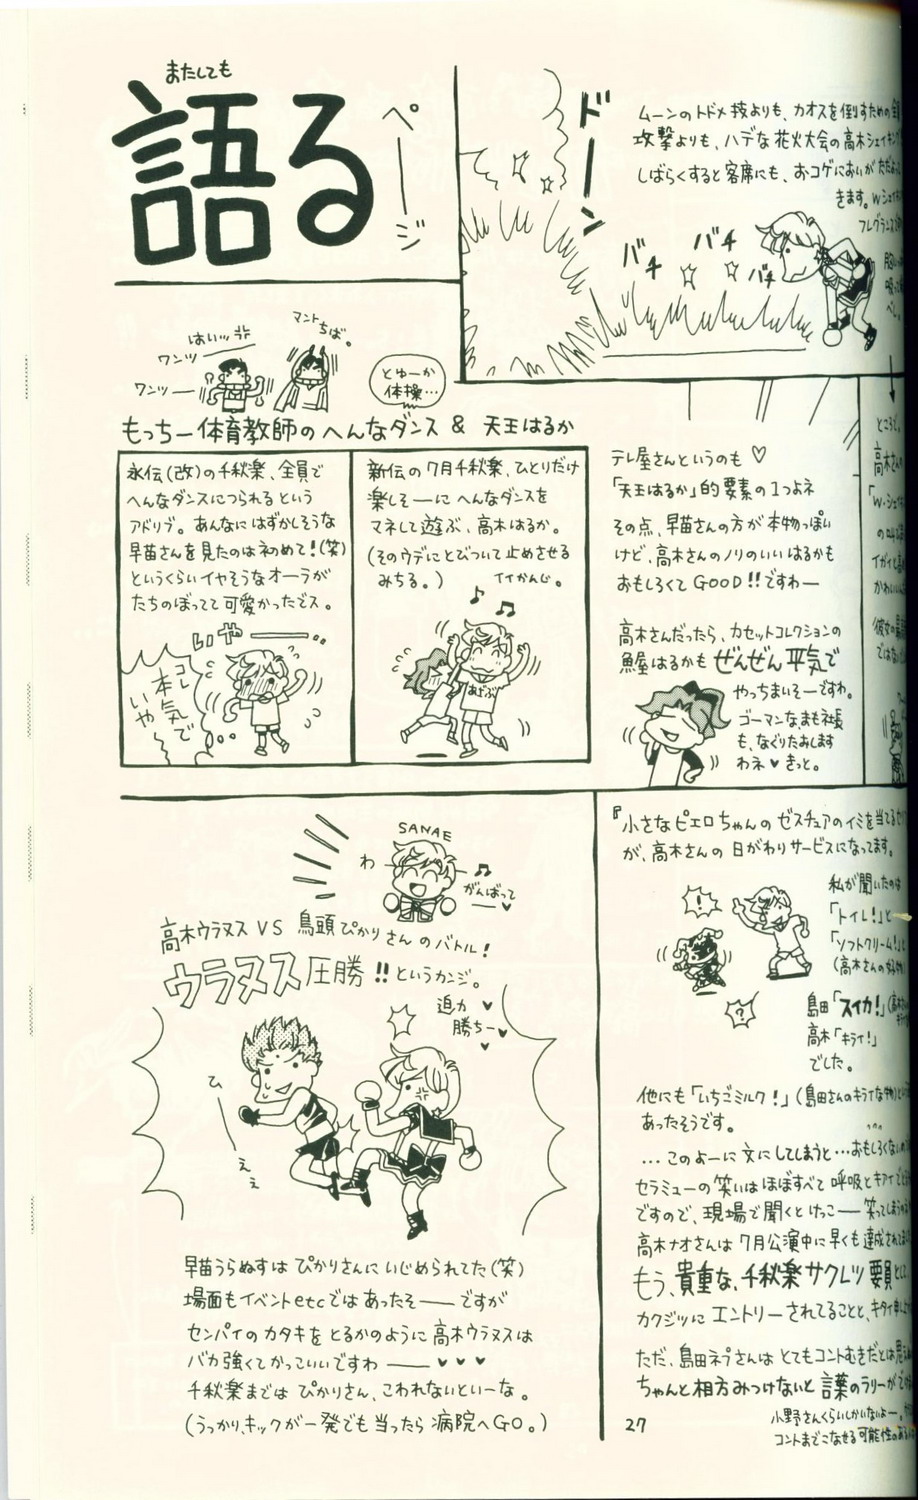 またしても
語る
ペーージ
ドーン
バチ
バチ
バチ
ムーンのトドメ技よりも、カオスを倒すための
攻撃よりも、ハデな花火大会の高木シェイキング
しばらくすると客席にも、おコゲにおいが
きます。
はいッ
ワンツ
ワンツー
マント
ちば。
とゅーか
体操…
もっちー体育教師のへんなダンス & 天王はるか
永伝(改)の千秋楽、全員で
へんなダンスにつられるという
アドリブ。あんなにはずかしそうな
早苗さんを見たのは初めて!(笑)
というくらいイヤそうなオーラが
たちのぼってて可愛かったでス。
いやーー…
コレ
本気で
いや〜
新伝の7月千秋楽、ひとりだけ
楽しそーーにへんなダンスを
マネして遊ぶ、高木はるか。
(そのウデにとびついて止めさせる
みちる。)
イイかんじ。
あぜぶ
テレ屋さんというのも♡
「天王はるか」的要素の1つよネ
その点、早苗さんの方が本物っぽい
けど、高木さんのノリのいいはるかも
おもしろくてGOOD!!ですわー
高木さんだったら、カセットコレクションの
魚屋はるかもぜんぜん平気で
やっちまいそーですわ。
ゴーマンなまも社長
も、なぐりたおします
わネ♥きっと。
ところで。
高木さんの
SANAE
わ
ーい
がんばって
ー♥
高木ウラヌス VS 鳥頭ぴかりさんのバトル!
ウラヌス圧勝!!というカンジ。
迫力♥
勝ちー♥
ひーーぇぇ
早苗うらぬすはぴかりさんにいじめられてた(笑)
場面もイベントetcではあったそーーですが
センパイのカタキをとるかのように高木ウラヌスは
バカ強くてかっこいいですわーー♥♥♥
千秋楽まではぴかりさん、こわれないといーな。
(うっかり、キックが一発でも当ったら病院へGO。)
『小さなピエロちゃんのゼスチュアのイミを当てる
が、高木さんの日がわりサービスになってます。
私が聞いたのは
「トイレ!」と
「ソフトクリーム!」と
(高木さんの好物)
!
?
島田「スイカ!」
高木「キライ!」
でした。
他にも「いちごミルク!」(島田さんのキライな物)
あったそうです。
…このよーに文にしてしまうと…おもしろくない
セラミューの笑いはほぼすべて呼吸とキアイで
ですので、現場で聞くとけっこーー笑ってしまう
高木ナオさんは7月公演中に早くも達成されて
もう、貴重な、千秋楽サクレツ要員として、
カクジツにエントリーされてることと、キタイ
ただ、島田ネプさんはとてもコントむきだとは思
ちゃんと相方みつけないと言葉のラリーが
小野さんくらいしかいないよー。
コントまでこなせる可能性のある
27